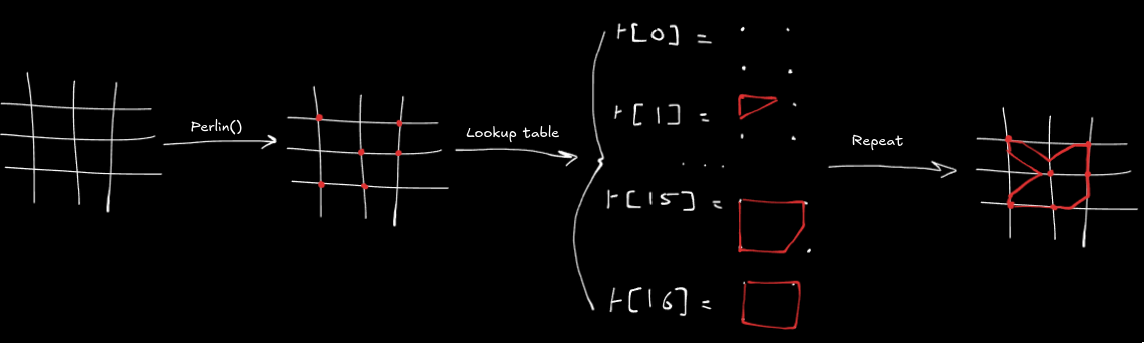 Perlin()
Lookup table
t[0] =
t[1] =
...
t[15] =
t[16] =
Repeat